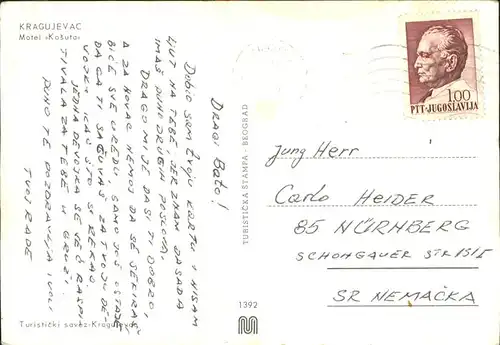 KRAGUJEVAC
Motel »Košuta«
DRAGI BATO!
Dobio sam tvoju kartu i nisam
ljut na tebe, jer znam da sada
imaš puno drugih poslova.
DRAGO MI JE DA SI TI DOBRO,
A ZA NOVAC NEMOJ DA SE SEKIRAŠ
BIĆE SVE U REDU SAMO JOŠ OSTAJE
DA GA TI SAČUVAŠ ZA TVOJU DE-
VOJKU KAO ŠTO SI REKAO.
JEDNA DEVOJKA SE VEĆ RASPI-
TIVALA ZA TEBE U GRUŽI.
PUNO TE POZDRAVLJA I VOLI
TVOJ RADE
Turistički savez-Kragujevac
TURISTIČKA ŠTAMPA - BEOGRAD
1392
1.00
PTT-JUGOSLAVIJA
Jung Herr
Carlo HEIDER
85 NÜRNBERG
SCHONGAUER STR
SR NEMAČKA